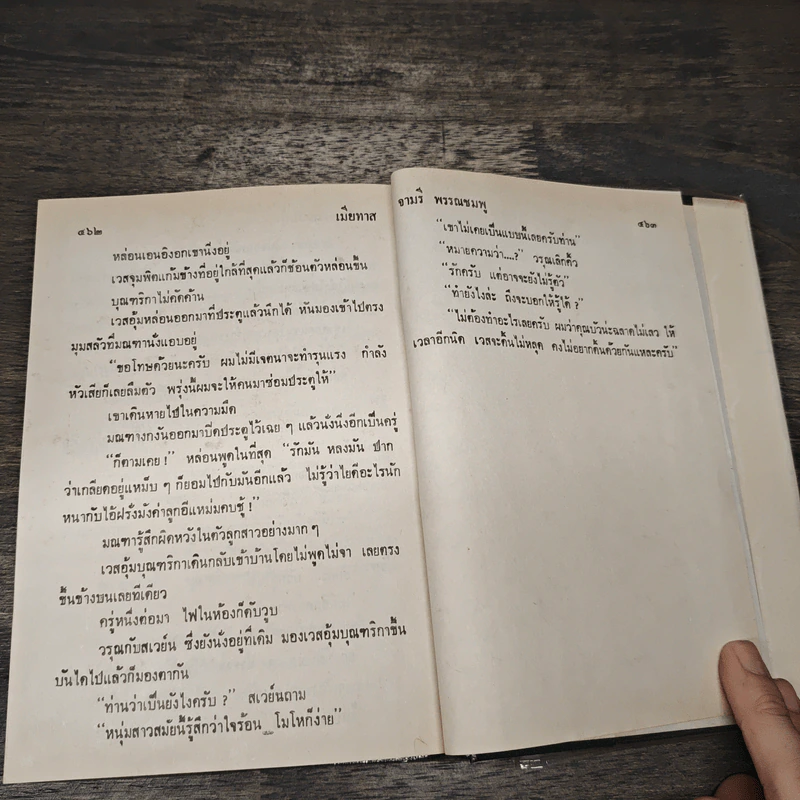 ๔๖๒
เมียทาส
หล่อนเอนอิงอกเขานิ่งอยู่
เวสจุมพิตแก้มข้างที่อยู่ใกล้ที่สุดแล้วก็ช้อนตัวหล่อนขึ้น
บุณฑริกาไม่คัดค้าน
เวสอุ้มหล่อนออกมาที่ประตูแล้วนึกได้ หันมองเข้าไปตรง
มุมสลัวที่มณฑานั่งแอบอยู่
“ขอโทษด้วยนะครับ ผมไม่มีเจตนาจะทำรุนแรง กำลัง
หัวเสียก็เลยลืมตัว พรุ่งนี้ผมจะให้คนมาซ่อมประตูให้”
เขาเดินหายไปในความมืด
มณฑางกงันออกมาปิดประตูไว้เฉย ๆ แล้วนั่งนิ่งอีกเป็นครู่
“ก็ตามเคย !” หล่อนพูดในที่สุด “รักมัน หลงมัน ปาก
ว่าเกลียดอยู่แหม็บ ๆ ก็ยอมไปกับมันอีกแล้ว ไม่รู้ว่าไยดีอะไรนัก
หนากับไอ้ฝรั่งมังค่าลูกอีแหม่มคบชู้ !”
มณฑารู้สึกผิดหวังในตัวลูกสาวอย่างมาก ๆ
เวสอุ้มบุณฑริกาเดินกลับเข้าบ้านโดยไม่พูดไม่จา เลยตรง
ขึ้นข้างบนเลยทีเดียว
ครู่หนึ่งต่อมา ไฟในห้องก็ดับวูบ
วรุณกับสเวย์น ซึ่งยังนั่งอยู่ที่เดิม มองเวสอุ้มบุณฑริกาขึ้น
บันไดไปแล้วก็มองตากัน
“ท่านว่าเป็นยังไงครับ ?” สเวย์นถาม
“หนุ่มสาวสมัยนี้รู้สึกว่าใจร้อน โมโหก็ง่าย”
จามรี พรรณชมพู
๔๖๓
“เขาไม่เคยเป็นแบบนี้เลยครับท่าน”
“หมายความว่า....?” วรุณเลิกคิ้ว
“รักครับ แต่อาจจะยังไม่รู้ตัว”
“ทำยังไงล่ะ ถึงจะบอกให้รู้ได้ ?”
“ไม่ต้องทำอะไรเลยครับ ผมว่าคุณบัวน่ะฉลาดไม่เลว ให้
เวลาอีกนิด เวสจะดิ้นไม่หลุด คงไม่อยากดิ้นด้วยกันแหละครับ”